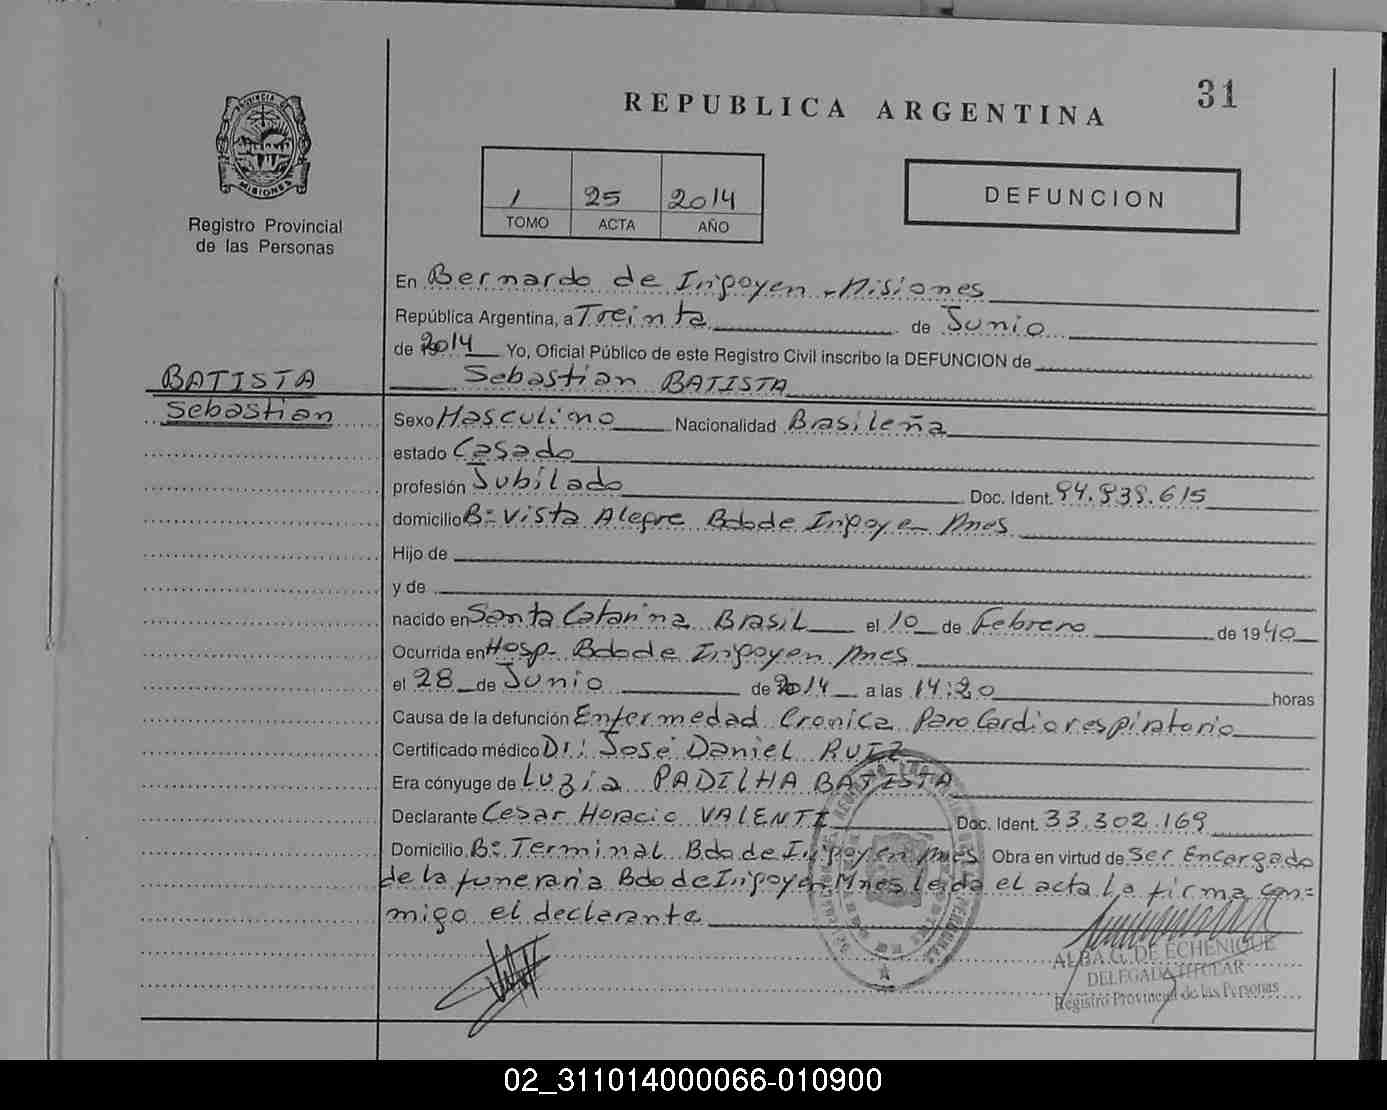 31
REPUBLICA ARGENTINA
PROVINCIA DE
MISIONES
Registro Provincial
de las Personas
1 25 2014
TOMO ACTA AÑO
DEFUNCION
En Bernardo de Irigoyen - Misiones
República Argentina, a Treinta de Junio
de 2014 Yo, Oficial Público de este Registro Civil inscribo la DEFUNCION de
BATISTA
Sebastian BATISTA
Sebastian
Sexo Masculino Nacionalidad Brasileña
estado Casado
profesión Jubilado Doc. Ident. 94.939.615
domicilio Bº Vista Alegre Bdo de Irigoyen Mnes
Hijo de
y de
nacido en Santa Catarina Brasil el 10 de Febrero de 1940
Ocurrida en Hosp. Bdo de Irigoyen Mnes
el 28 de Junio de 2014 a las 14:20 horas
Causa de la defunción Enfermedad Cronica Paro Cardiorespiratorio
Certificado médico Dr: José Daniel RUIZ
Era cónyuge de Luzia PADILHA BATISTA
Declarante Cesar Horacio VALENTI Doc. Ident. 33.302.169
Domicilio Bº Terminal Bdo de Irigoyen Mnes Obra en virtud de Ser Encargado
de la funeraria Bdo de Irigoyen Mnes leida el acta la firma con=
migo el declarante
ALBA G. DE ECHENIQUE
DELEGADA TITULAR
Registro Provincial de las Personas
02_311014000066-010900